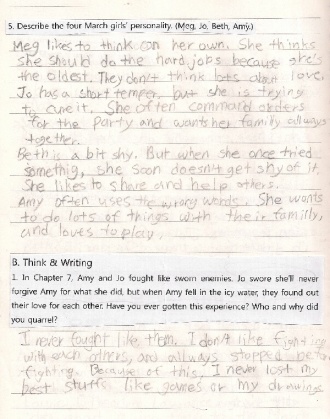 5. Describe the four March girls' personality. (Meg, Jo, Beth, Amy.)
Meg likes to think on her own. She thinks
she should do the hard jobs because she's
the oldest. They don't think lots about love.
Jo has a short temper, but she is trying
to cure it. She often command orders
for the party and wants her family allways
together.
Beth is a bit shy. But when she once tried
somethig, she soon doesn't get shy of it.
She likes to share and help others.
Amy often uses the wrong words. She wants
to do lots of things with their familly,
and loves to play.
B. Think & Writing
1. In Chapter 7, Amy and Jo fought like sworn enemies. Jo swore she'll never
forgive Amy for what she did, but when Amy fell in the icy water, they found out
their love for each other. Have you ever gotten this experience? Who and why did
you quarrel?
I never fought like them. I don't like fight
with each others, and allways stopped
fighting. Because of this, I never lost my
best stuffs, like games or my drawings